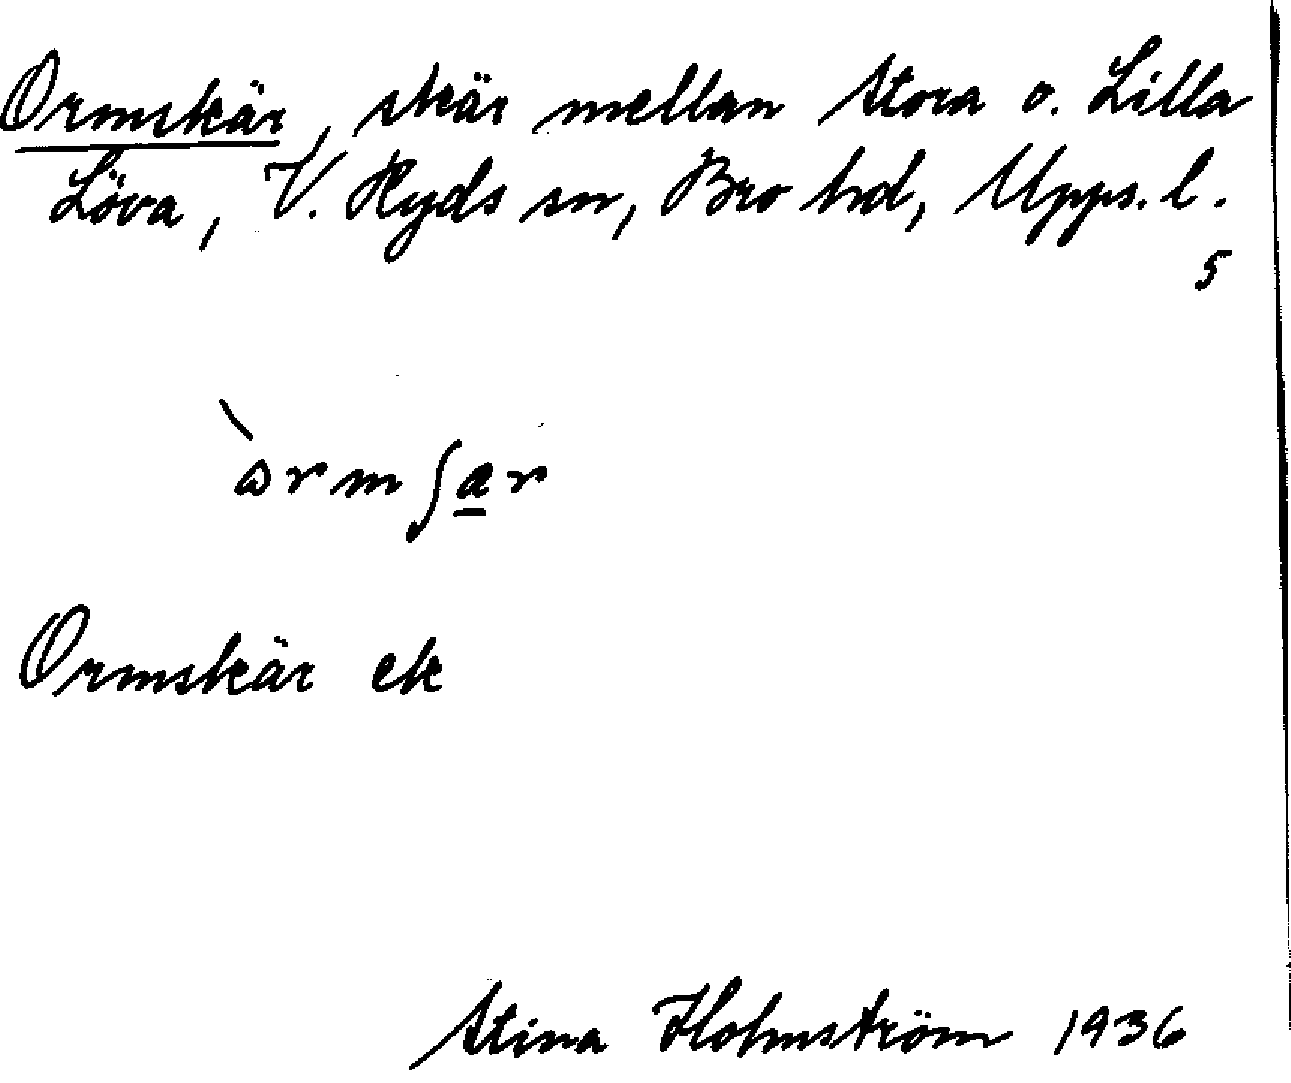 Ormskär, skär mellan Stora o. Lilla
Löva, V. Ryds sn, Bro hd, Upps. l.
5
Ormskär ek
Stina Holmström 1936